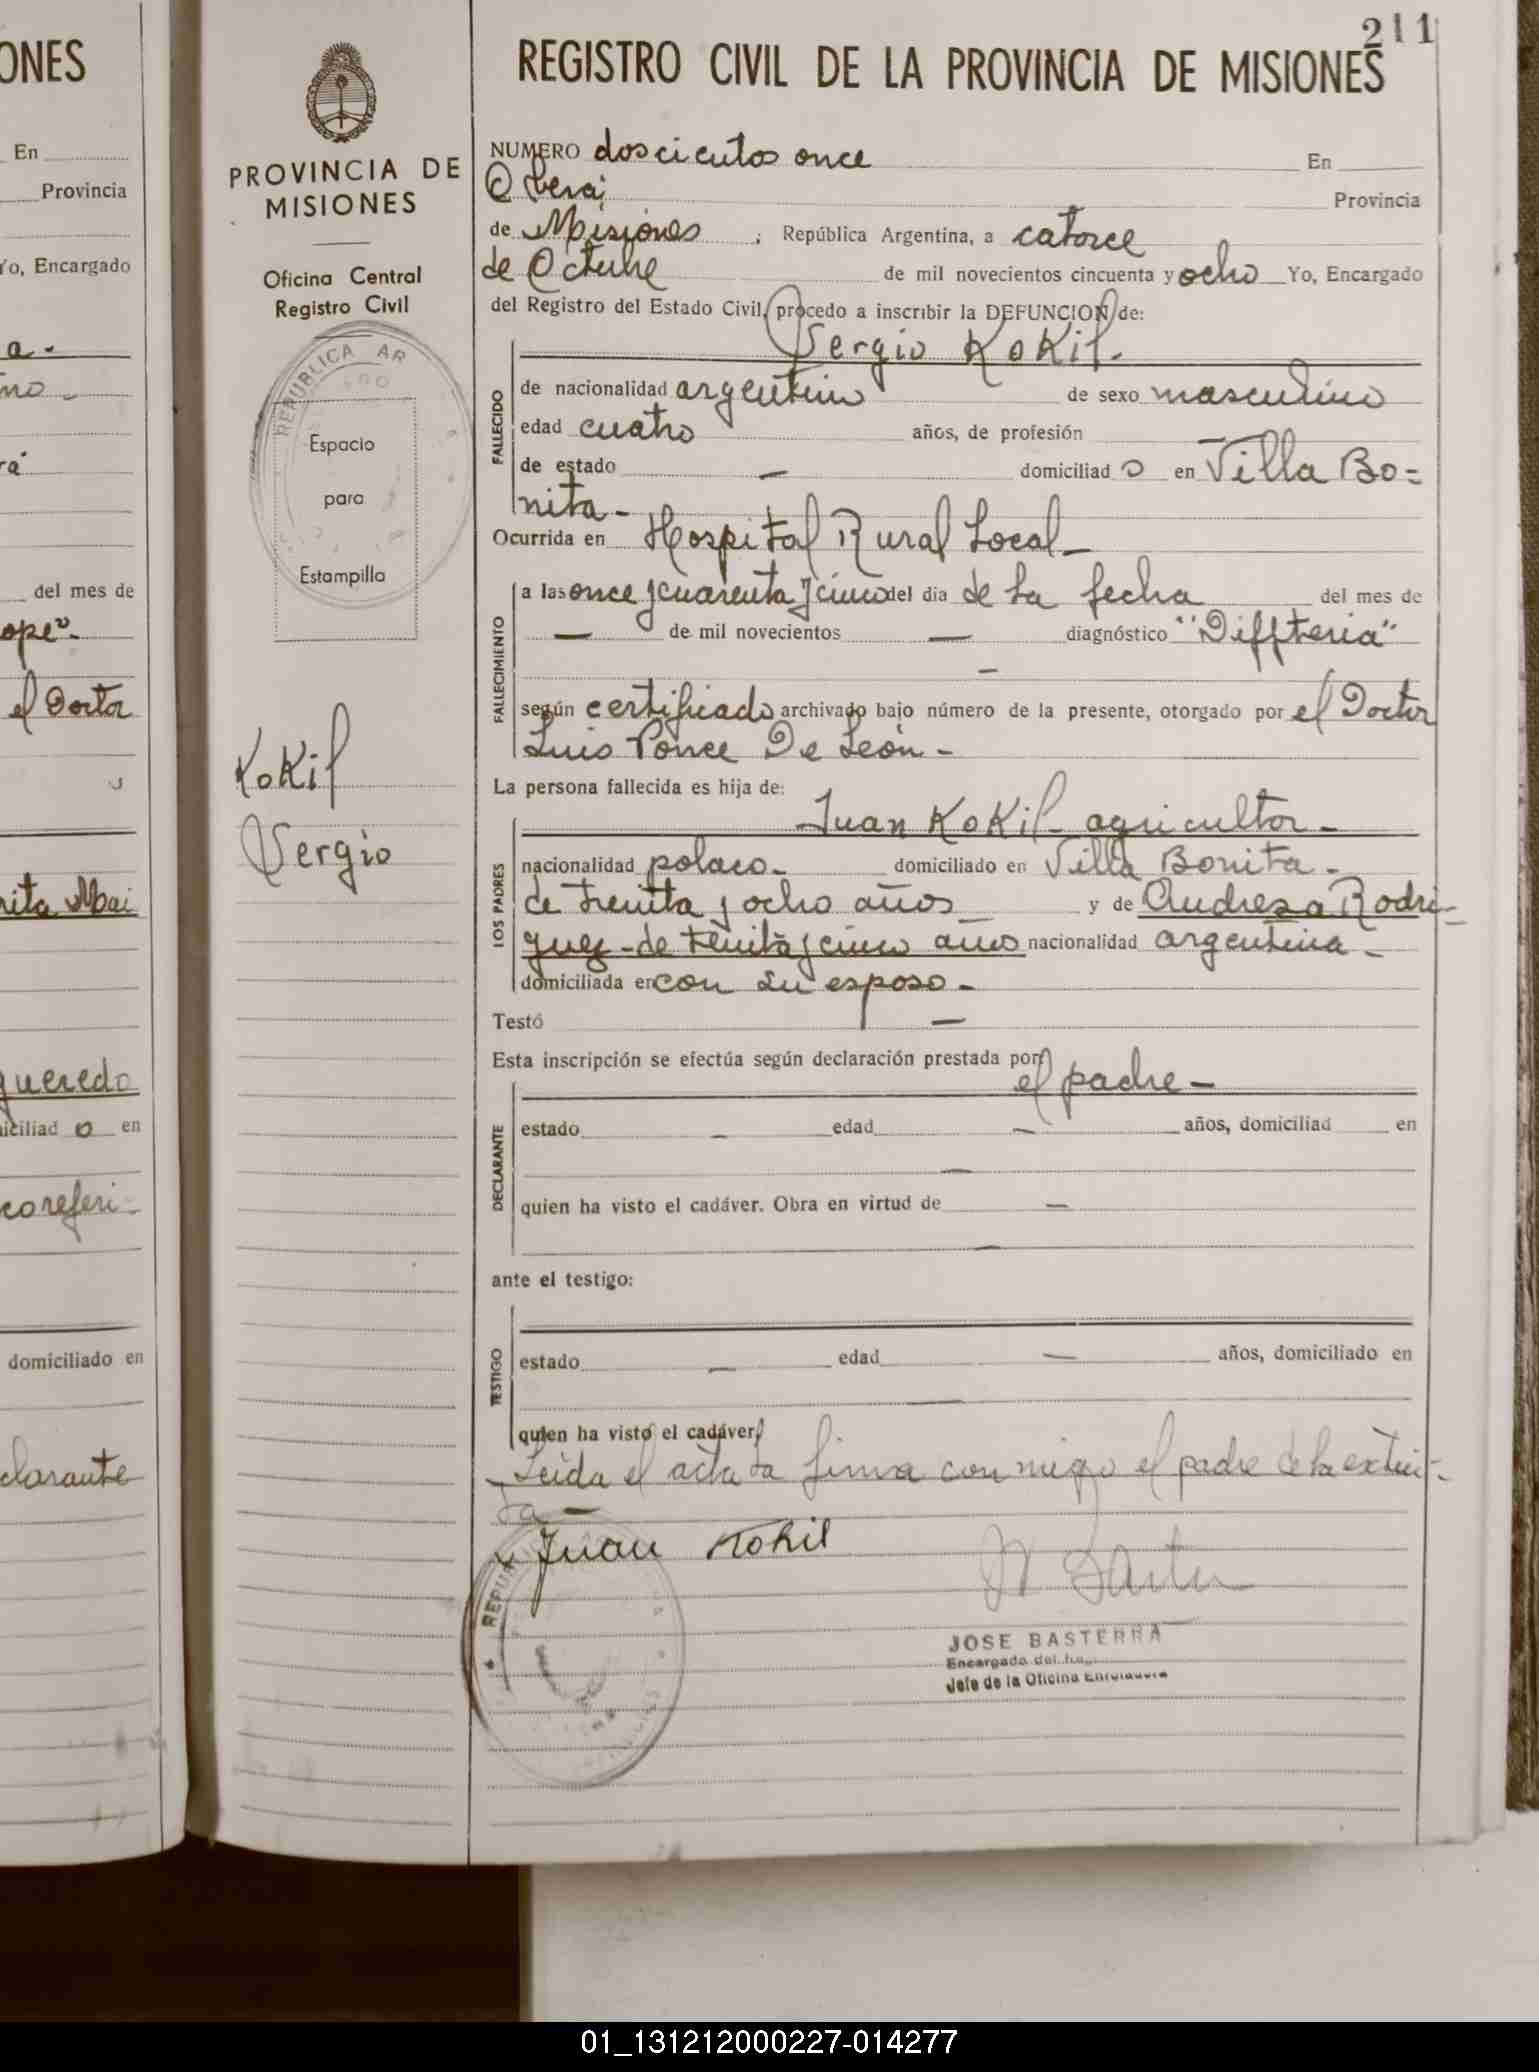 ONES
En
Provincia
Yo, Encargado
a.-
no -
rá
del mes de
ope"-
el Doctor
rita Mai
queredo
iciliad o en
co referi-
domiciliado en
clarante
211
REGISTRO CIVIL DE LA PROVINCIA DE MISIONES
PROVINCIA DE
MISIONES
Oficina Central
Registro Civil
REPUBLICA AR
Espacio
para
Estampilla
Kokil
Sergio
NUMERO doscientos once En
Oberá Provincia
de Misiones ; República Argentina, a catorce
de Octubre de mil novecientos cincuenta y ocho Yo, Encargado
del Registro del Estado Civil, procedo a inscribir la DEFUNCION de:
Sergio Kokil.-
FALLECIDO
de nacionalidad argentino de sexo masculino
edad cuatro años, de profesión
de estado — domiciliad o en Villa Bo=
nita-
Ocurrida en Hospital Rural Local-
FALLECIMIENTO
a las once y cuarenta y cinco del dia de la fecha del mes de
— de mil novecientos — diagnóstico "Diffteria"
—
según certificado archivado bajo número de la presente, otorgado por el Doctor
Luis Ponce De León-
La persona fallecida es hija de:
Juan Kokil- agricultor-
LOS PADRES
nacionalidad polaco- domiciliado en Villa Bonita-
de treinta y ocho años y de Andresa Rodri-
guez-de treinta y cinco años nacionalidad argentina-
domiciliada en con su esposo-
Testó —
Esta inscripción se efectúa según declaración prestada por
el padre-
DECLARANTE
estado — edad — años, domiciliad en
—
quien ha visto el cadáver. Obra en virtud de —
—
ante el testigo:
TESTIGO
estado — edad — años, domiciliado en
—
quien ha visto el cadáver.
Leida el acta la firma conmigo el padre de la extin-
ta-
x Juan Kokil
REPUB
JOSE BASTERRA
Encargado del
Jefe de la Oficina Enroladora
01_131212000227-014277